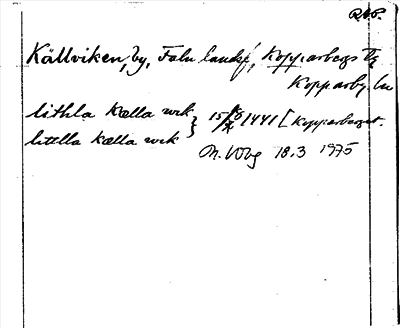 Källviken, by, Falu landsf, Kopparbergs tg
Kopparbg. län
lithla Kælla wik
littlla Kælla wik } 15/8 1441 [Kopparberget.
18.3 1975